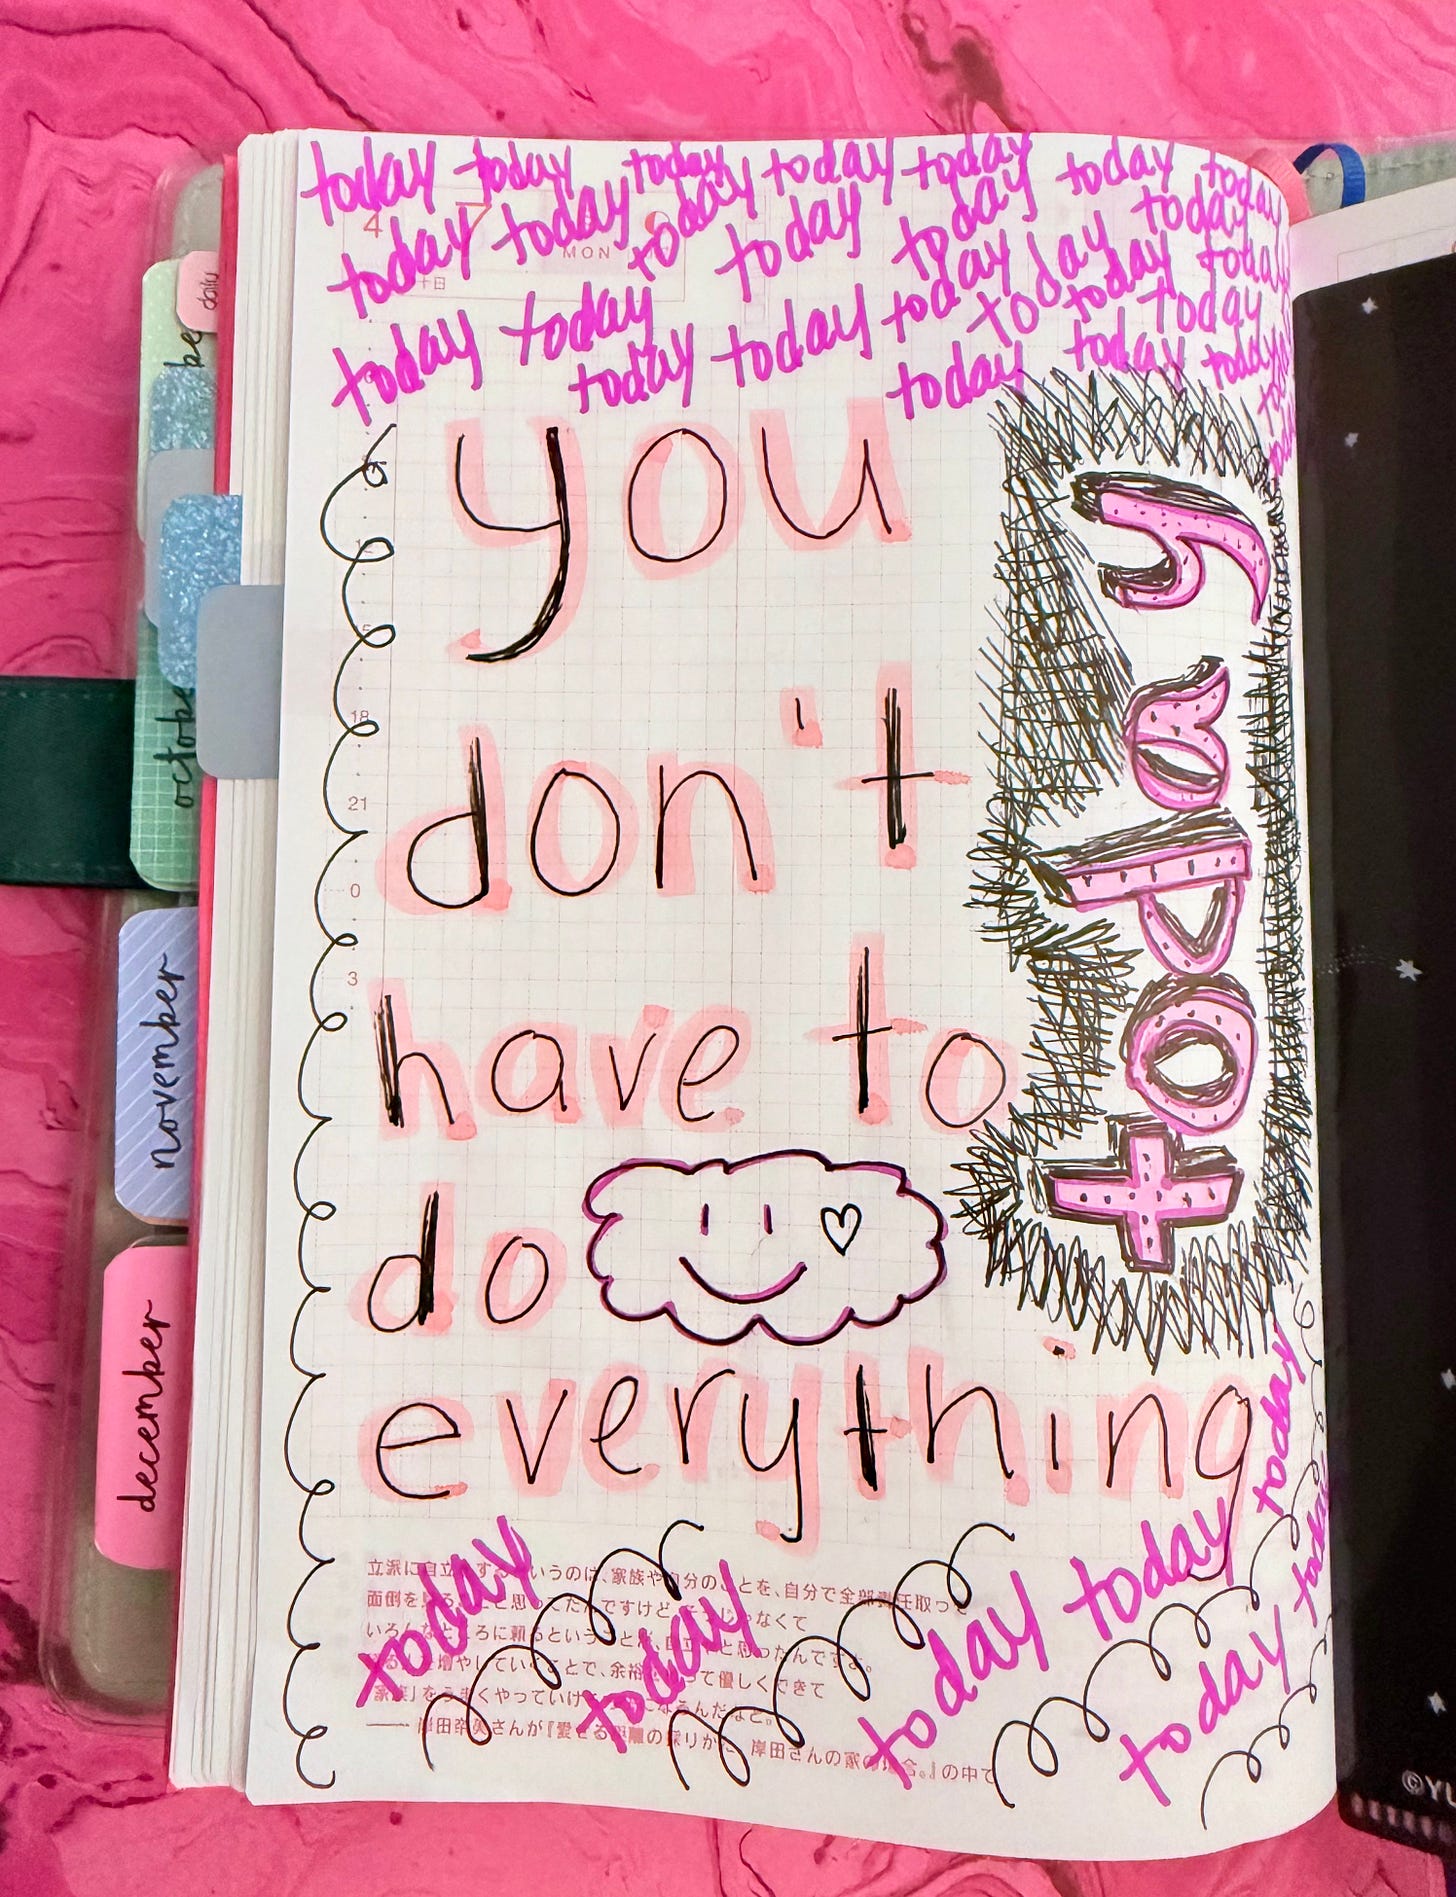 today today today today today today today
today today today today today today
4 7
MON
十日
today today today today today today
today today today today today today
you
18
don't
21
0
have to
3
do
everything
today
today today today today today today today
立派に自立するというのは、家族や自分のことを、自分で全部責任取って
面倒を見ることと思ってたんですけど、そうじゃなくて
いろんなところに頼るということが、自立だと思ったんですよ。
を増やしていくことで、余裕 って優しくできて
「家族」をうまくやっていける になるんだなと。
—— 岸田奈美さんが『愛せる距離の採りかた 岸田さんの家の場合。』の中で
daily
be
octobe
november
december
©YU